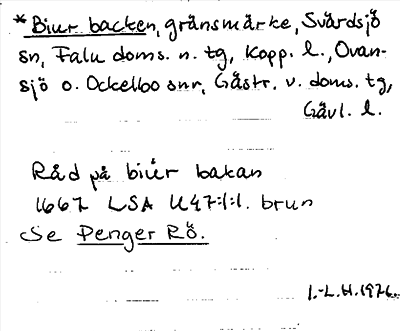 * Biur backen, gränsmärke, Svärdsjö
sn, Falu doms. n. tg, Kopp. l., Ovan-
sjö o. Ockelbo snr, Gästr. v. doms. tg,
Gävl. l.
Råd på biúr bakan
1667 LSA U47:1:1. brun
Se Penger Rö.
I.-L.H.1976.